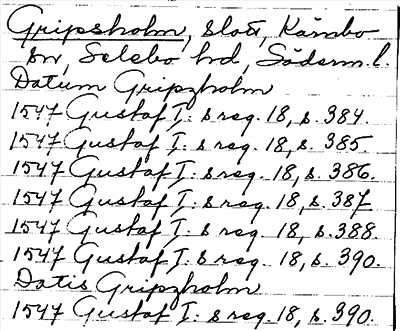 Gripsholm, slott, Kärnbo
sn, Selebo hd, Söderm. l.
Datum Gripzholm
1547 Gustaf I: s reg. 18, s. 384.
1547 Gustaf I: s reg. 18, s. 385.
1547 Gustaf I: s reg. 18, s. 386.
1547 Gustaf I: s reg. 18, s. 387
1547 Gustaf I: s reg. 18, s. 388
1547 Gustaf I: s reg. 18, s. 390.
Datis Gripzholm
1547 Gustaf I: s reg. 18, s. 390.